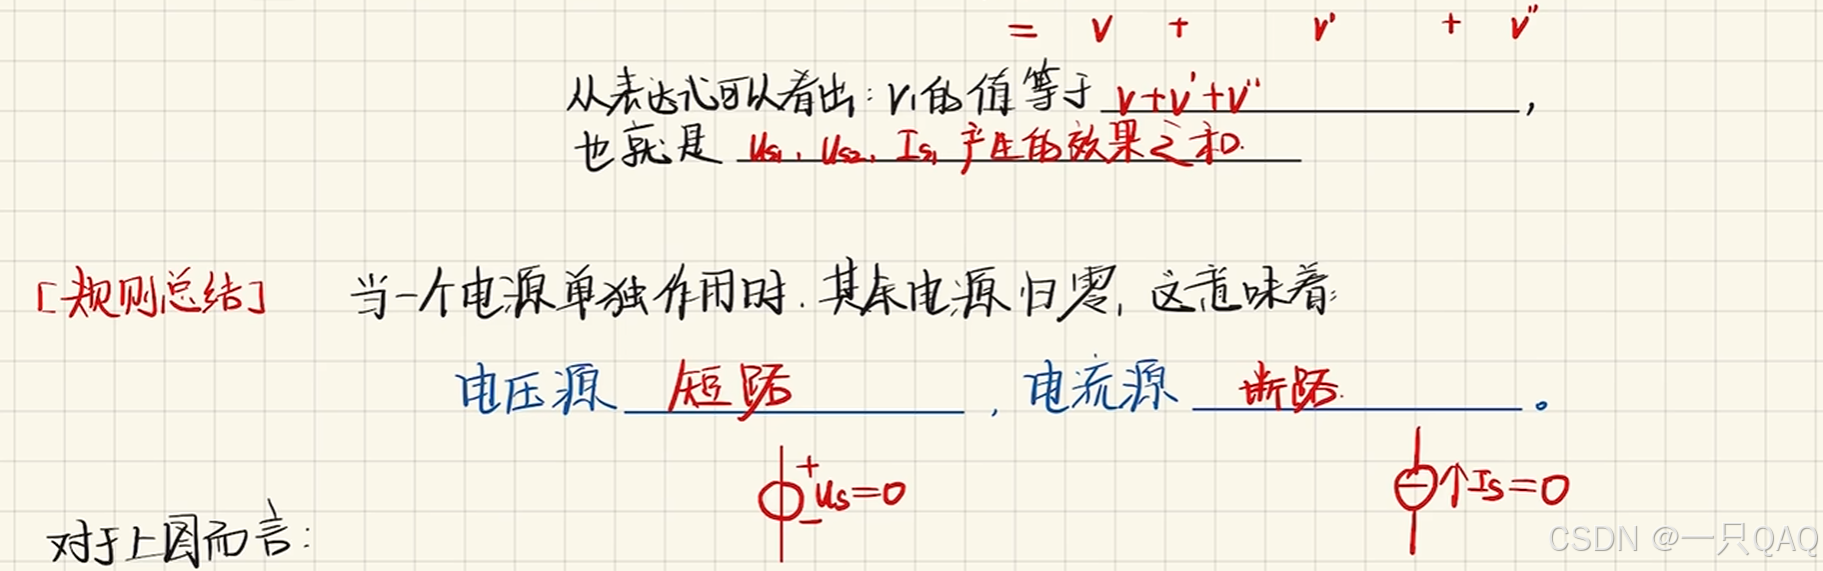 = V + V' + V''
从表达式可以看出：V₁的值等于 V+V'+V'' ，
也就是 Us₁、Us₂、Is₁ 产生的效果之和.
[规则总结] 当一个电源单独作用时.其余电源归零,这意味着:
电压源 短路 ，电流源 断路. 。
+ Us=0 - ↑Is=0
对于上图而言：
CSDN @一只QAQ